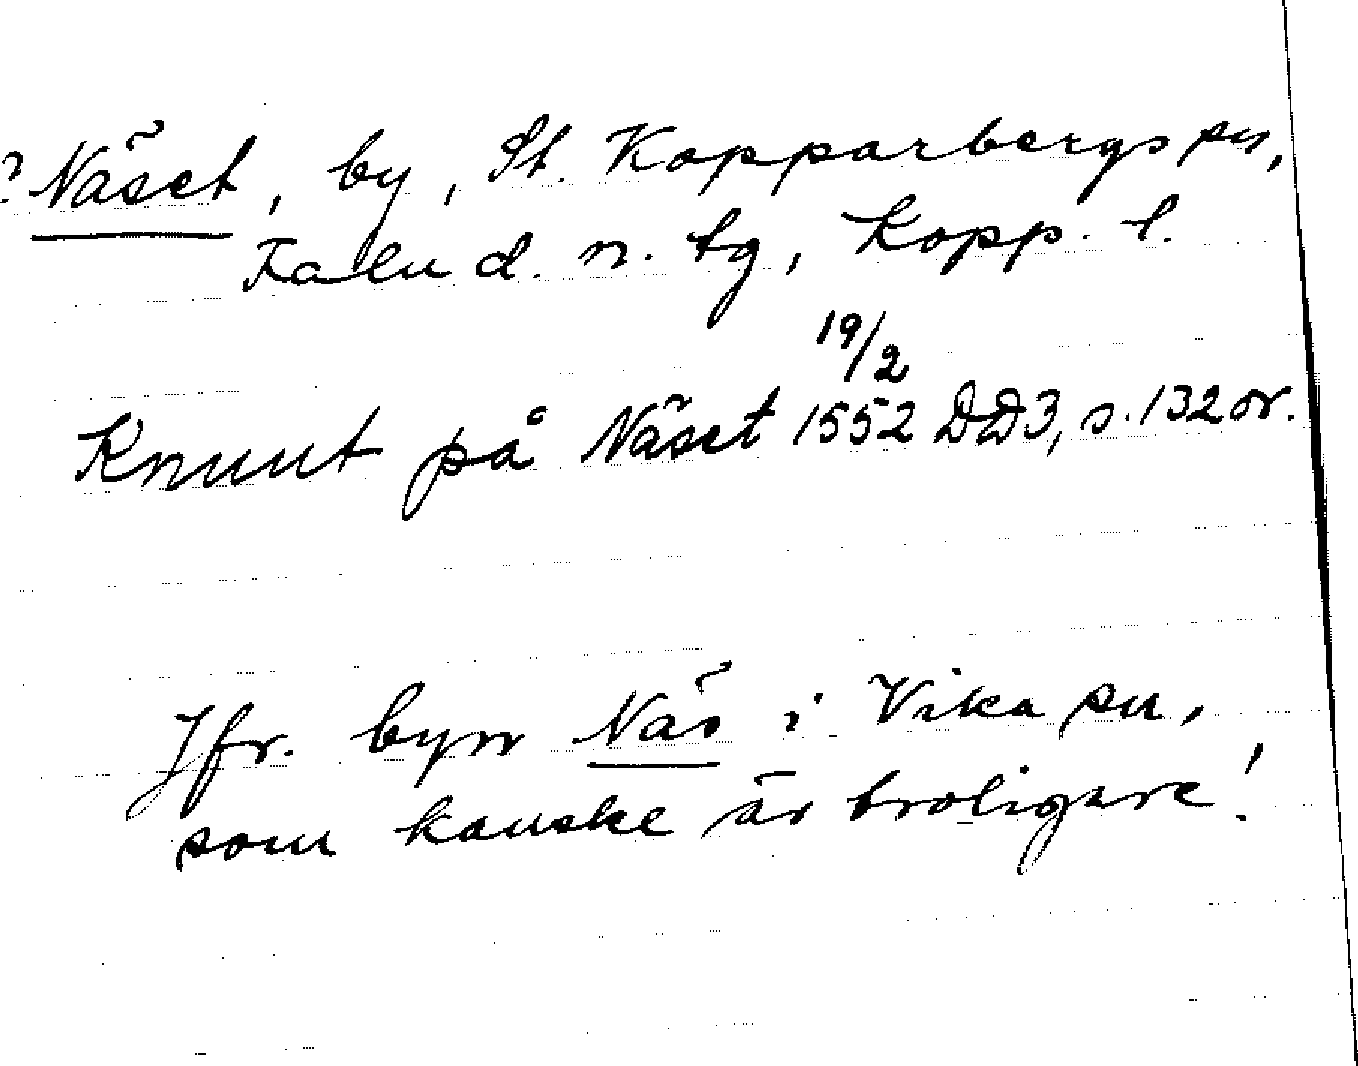 ? Näset, by, St. Kopparbergs sn,
Falu d. n. tg, Kopp. l.
19/2
Knuut på Näset 1552 DD3, s. 132 or.
Jfr. byn Näs i Vika sn,
som kanske är troligare!